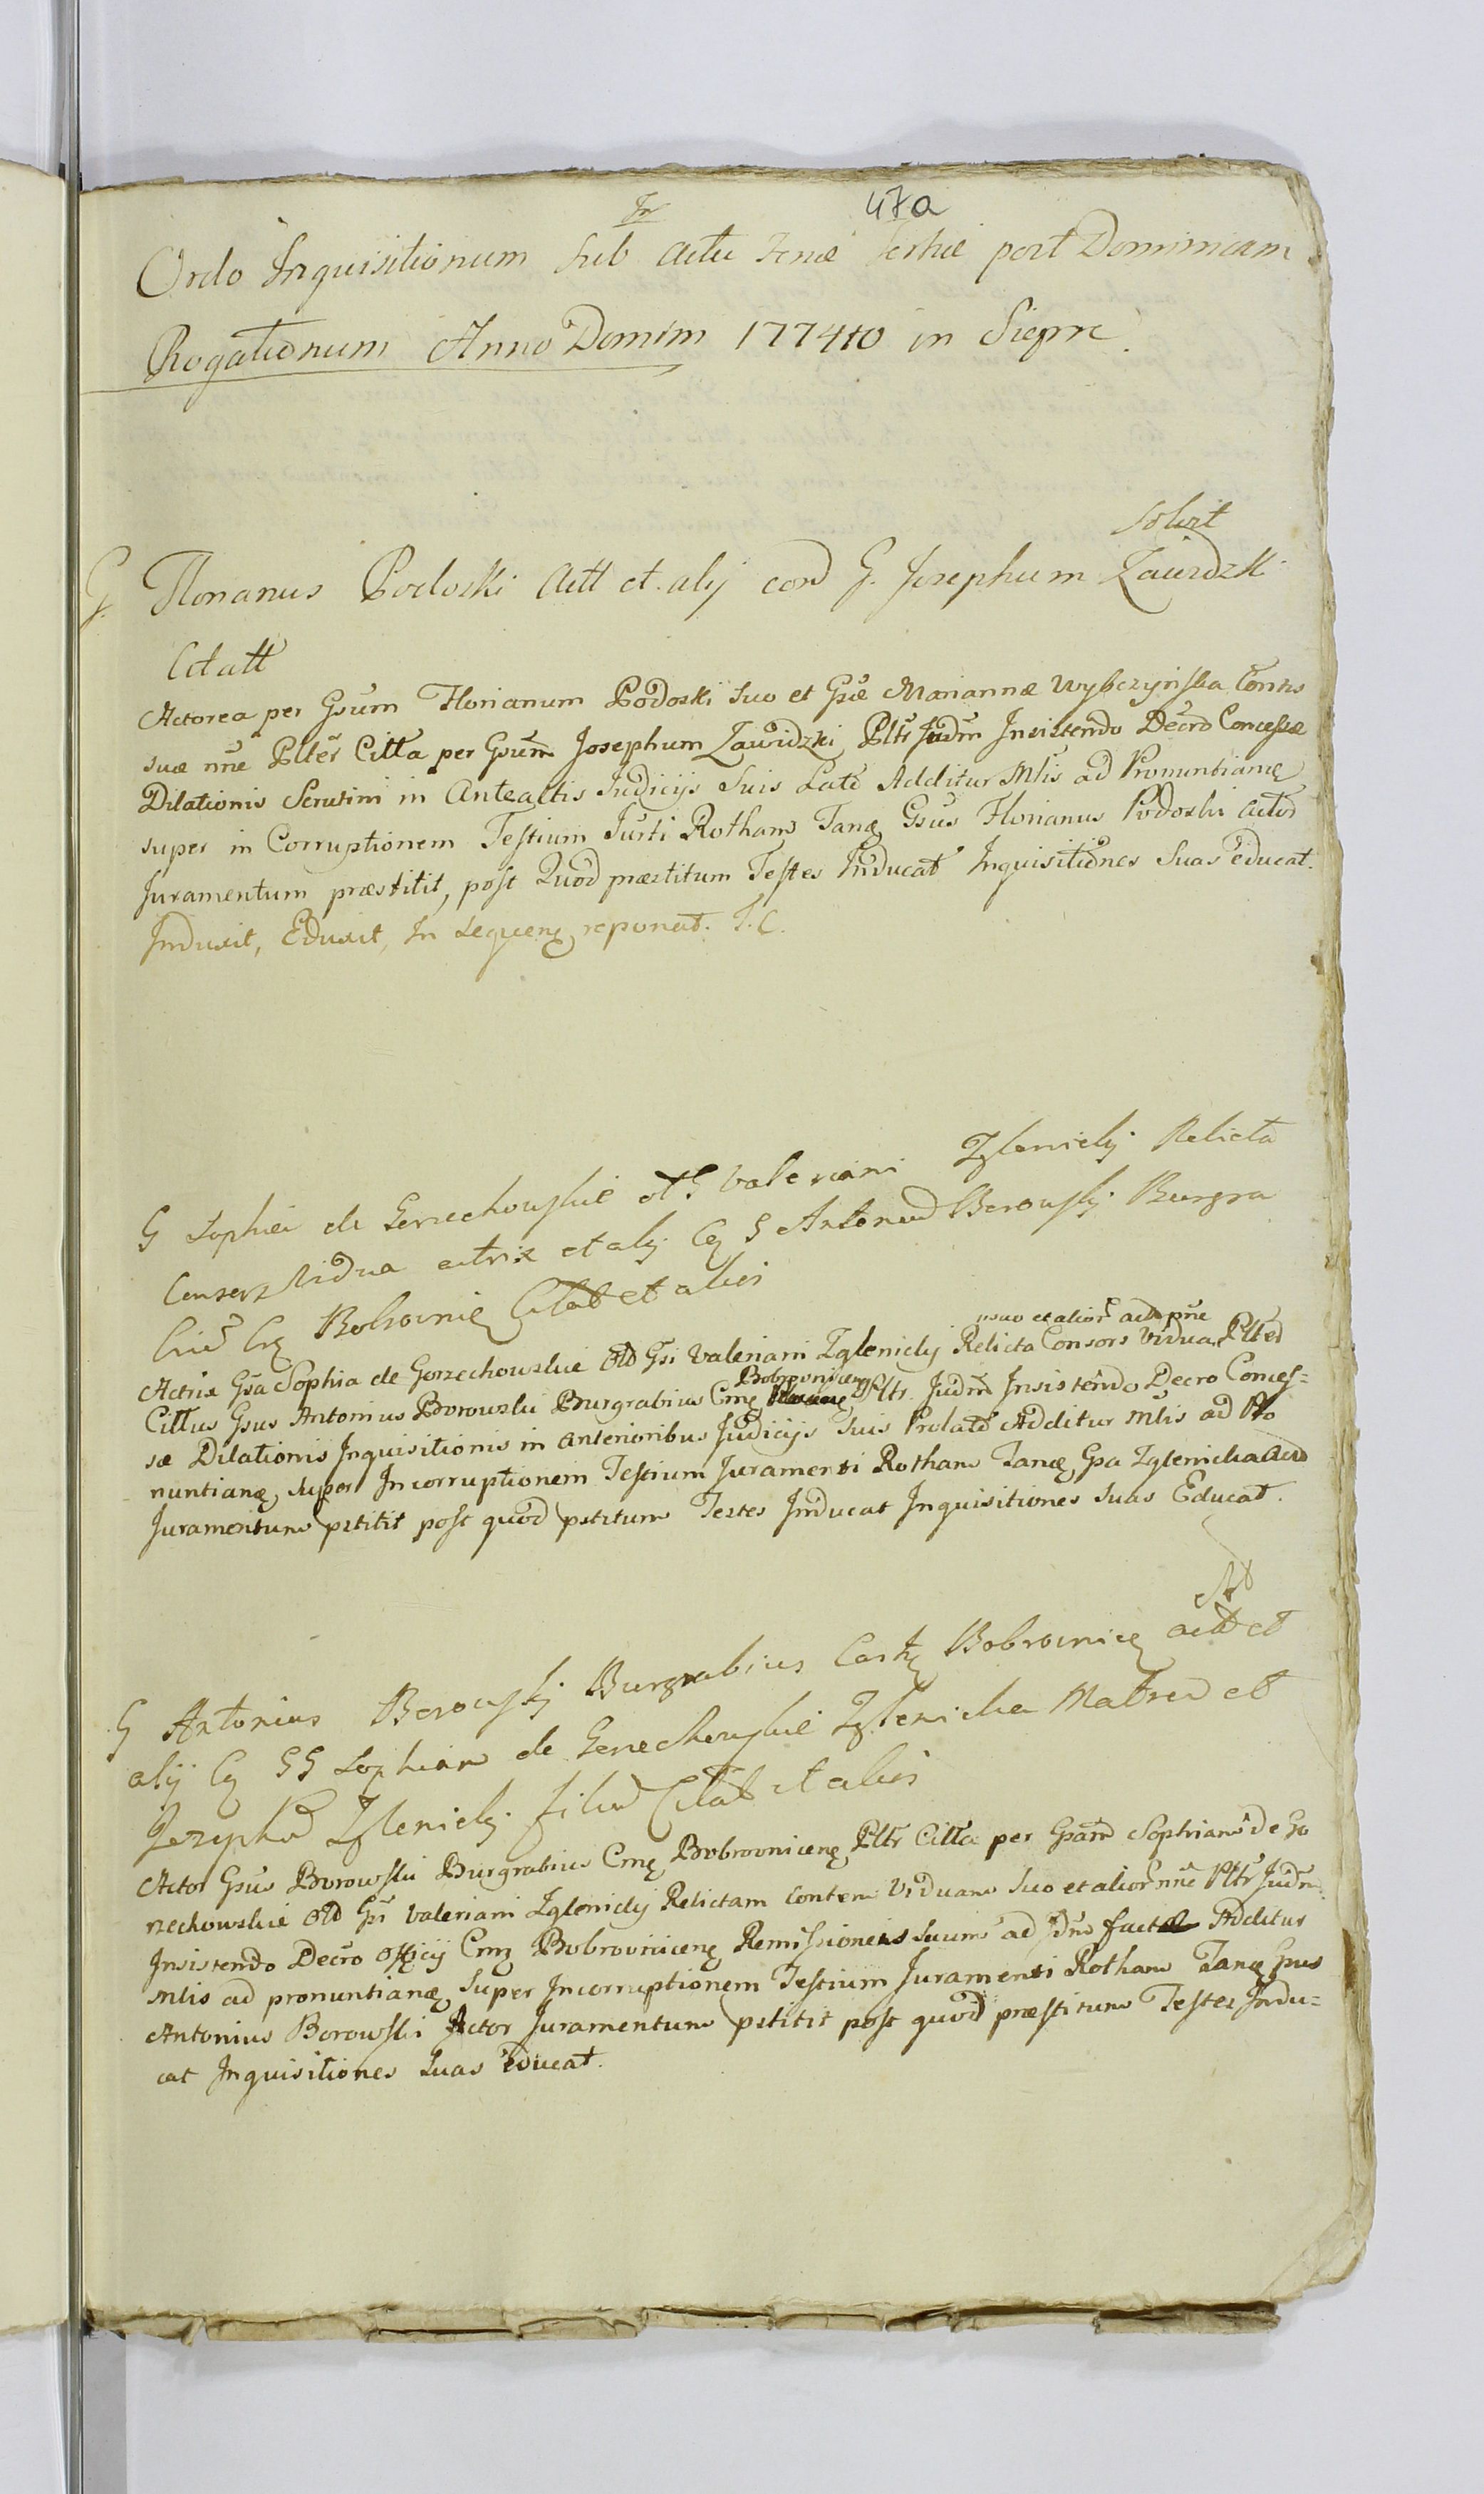 47a
Ordo Inquisitionum sub actu Feriæ Tertiæ post Dominicam
Rogationum Anno Domini 177410 in Sierpc
solvit
G. Florianus Podoski Actt et alij cond G. Josephum Zawidzki
Citatt
Actorea per Gsum Florianum Podoski suo et Gsæ Mariannæ Wybczyńska Contis
suæ nne Plter Citta per Gsum Josephum Zawidzki Pltr Judm Insistendo Decro Concessæ
Dilationis Scrutini in Anteactis Judicijs suis Late Additur Mlis ad Pronuntianę
super in Corruptionem Testium Justi Rotham Tanę Gsus Florianus Podoski Actor
Juramentum præstitit, post Quod præstitum Testes Inducat Inquisitiones suas educat.
Induxit, Eduxit, In sequenę reponat. J. C.
G Sophia de Gorzechowskie olt G Valeriani Zglenicky Relicta
Consors Vidua actrix et alij Cę G Antonium Borowsky Burgra
Crę Bobrownię Citat et alios
suo et alior acto pne
Actrix Gsa Sophia de Gorzechowskie Old Gsi Valeriani Zglenicky Relicta Consors Vidua Plter
Bobrovnicenę
Cittus Gsus Antonius Borowski Burgrabius Cmę Pltr Judm Insistendo Decro Conces=
sæ Dilationis Inquisitionis in anterioribus Judicijs suis Prolatæ Additur Mlis ad Pro
nuntianę super Incorruptionem Testium Juramenti Rotham Tanę Gsa Zglenicka Acto
Juramentum pstitit post quod pstitum Testes Inducat Inquisitiones suas Educat.
G Antonius Borowsky Burgrabius Castę Bobrownicę actt et
alij Cę GG Sophiam de Gorzechowskie Zglenicka Matrem et
Josephum Zglenicky filium Citat et alios
Actor Gsus Borowski Burgrabius Cmę Bobrovnicenę Pltr Citta per Gsam Sophiam de Go
rzechowskie Old Gsi Valeriani Zglenicky Relictam Contem Viduam suo et alior nne Pltr Judm
Insistendo Decro Officij Cmę Bobrovnicenę Remissionens suum ad Jdm fact Additur
Mlis ad pronuntianę Super Incorruptionem Testium Juramenti Rotham Tanę Gsus
Antonius Borowski Actor Juramentum pstitit post quod præstitum Testes Indu=
cat Inquisitiones suas educat.